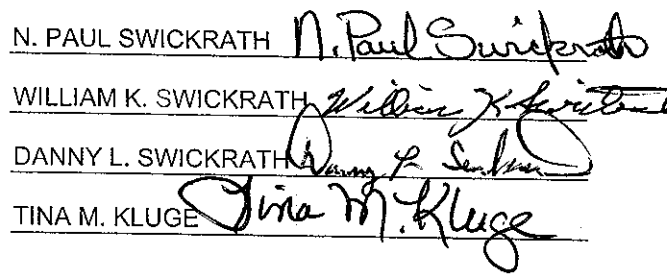 N. PAUL SWICKRATH N. Paul Swickrath
WILLIAM K. SWICKRATH William K Swickrath
DANNY L. SWICKRATH Danny L
TINA M. KLUGE Tina M. Kluge